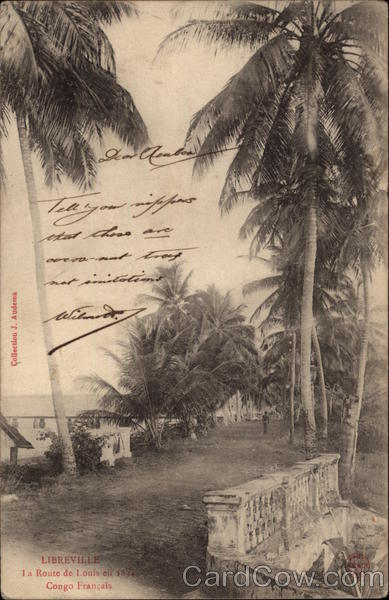 Dear Reuben
Tell your nippers
that those are
cocoa-nut trees
not imitations
Collection J. Audema
LIBREVILLE
La Route de Louis en
Congo Français
CardCow.com